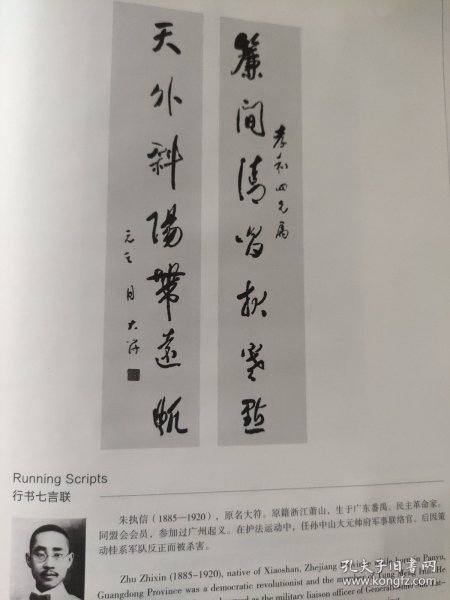 簾間清唱報寒點
孝和四兄屬
天外斜陽帶遠帆
大符
Running Scripts
行书七言联
朱执信（1885—1920），原名大符。原籍浙江萧山，生于广东番禺。民主革命家。
同盟会会员，参加过广州起义。在护法运动中，任孙中山大元帅府军事联络官。后因策
动桂系军队反正而被杀害。
Zhu Zhixin (1885-1920), native of Xiaoshan, Zhejiang born in Panyu,
Guangdong Province was a democratic revolutionist and the
as the military liaison officer of
孔夫子旧书网